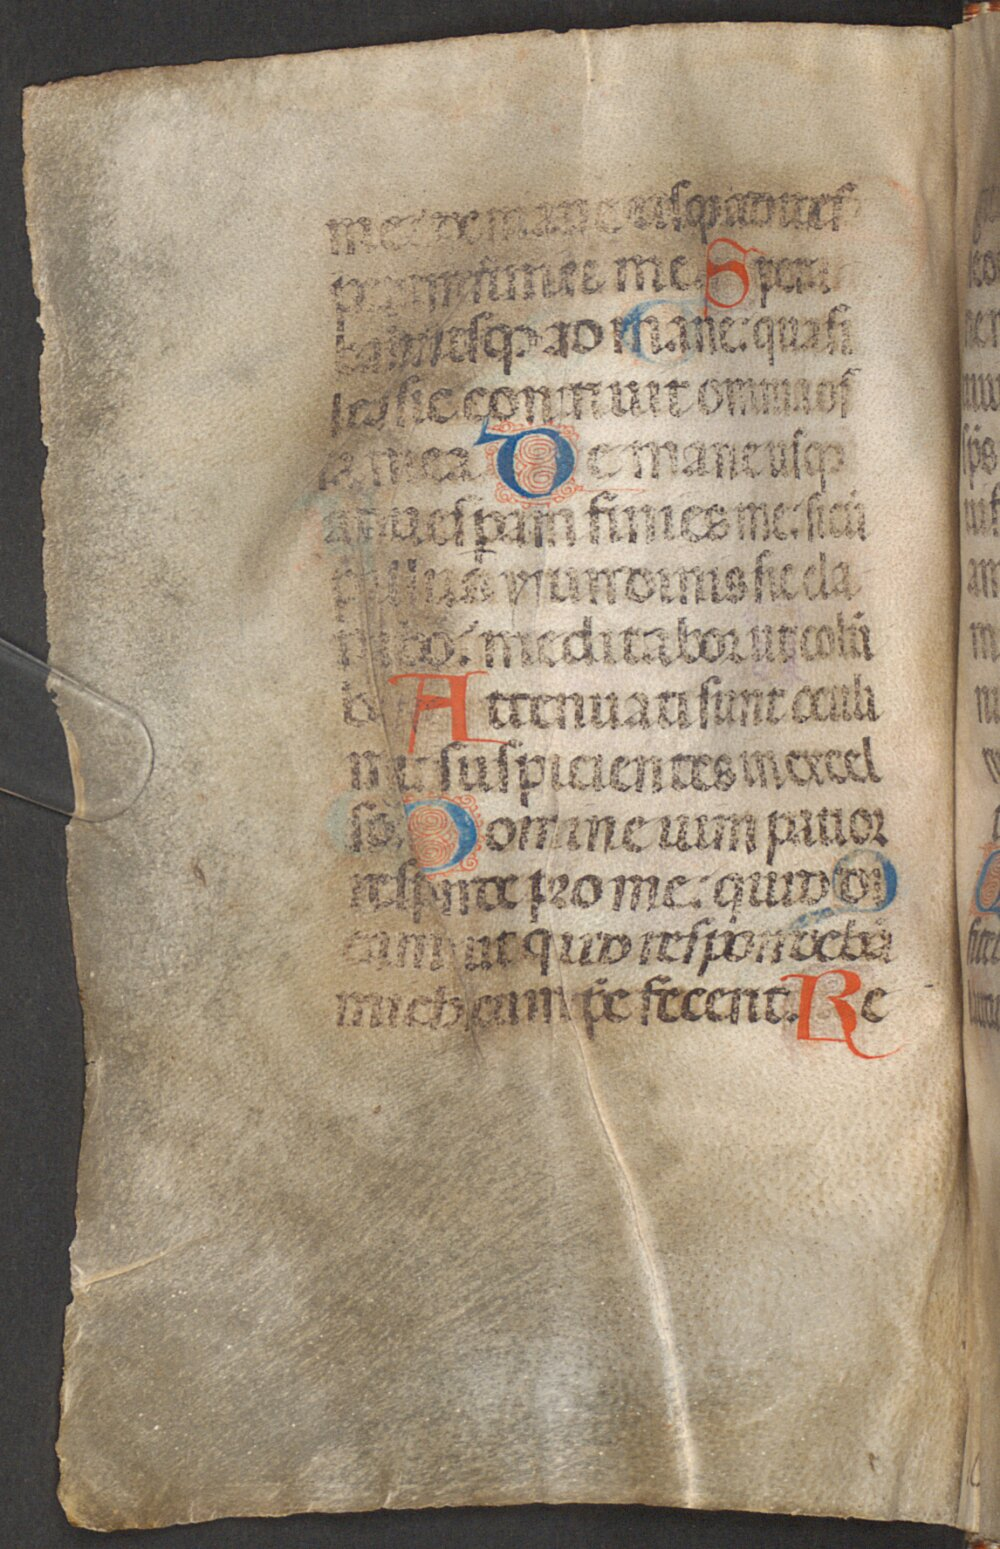 me: de mane usq; ad ues
peram finies me. Spera
bam usq; ad mane: quasi
leo sic contriuit omnia os
sa mea De mane usq;
ad uespam finies me: sicut
pullus yrundinis sic cla
mabo: meditabor ut colū
ba Attenuati sunt oculi
mei suspicientes in excel
so. Domine uim patior
responde pro me: quid di
cam aut quid respondebit
michi cum ip̄e fecerit. Re